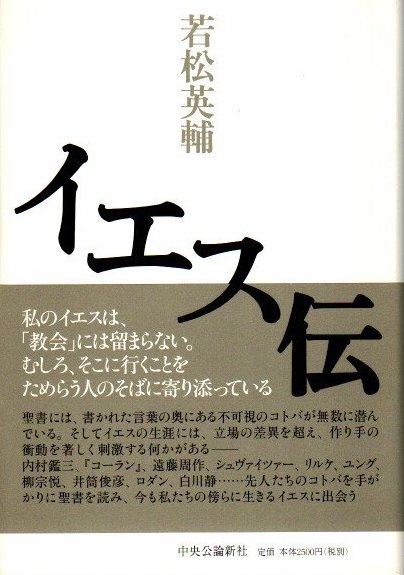 若松英輔
イエス伝
私のイエスは、
「教会」には留まらない。
むしろ、そこに行くことを
ためらう人のそばに寄り添っている
聖書には、書かれた言葉の奥にある不可視のコトバが無数に潜ん
でいる。そしてイエスの生涯には、立場の差異を超え、作り手の
衝動を著しく刺激する何かがある――
内村鑑三、『コーラン』、遠藤周作、シュヴァイツァー、リルケ、ユング、
柳宗悦、井筒俊彦、ロダン、白川静……先人たちのコトバを手が
かりに聖書を読み、今も私たちの傍らに生きるイエスに出会う
中央公論新社 定価 本体2500円(税別)